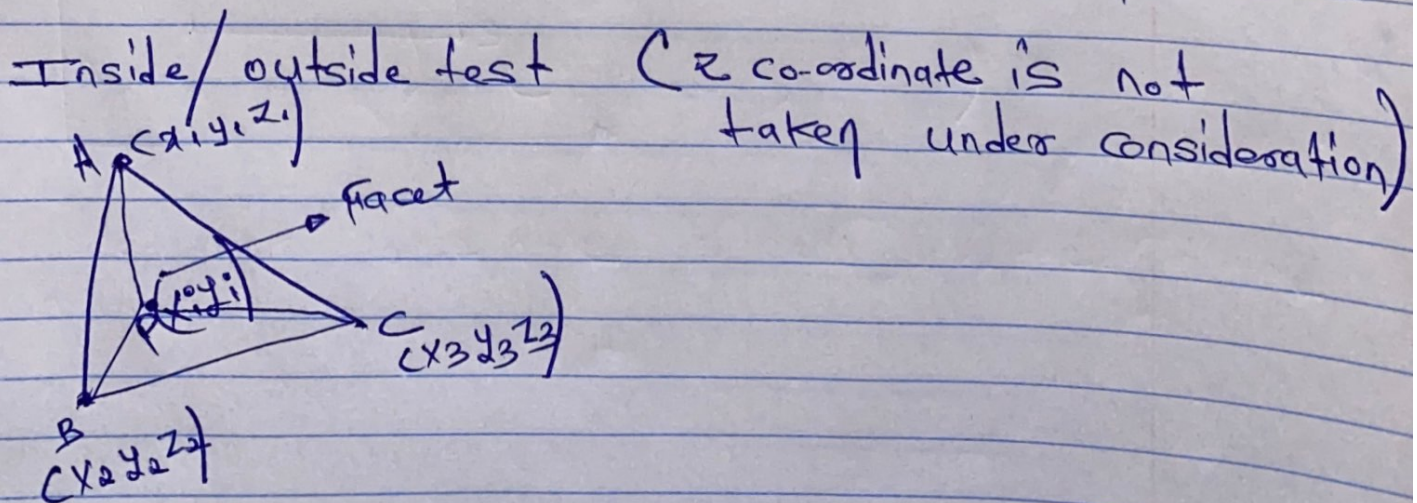 Inside/outside test (z co-ordinate is not
taken under consideration)
A (x1y1z1)
Facet
P(xi,yi)
C
(x3y3z3)
B
(x2y2z2)